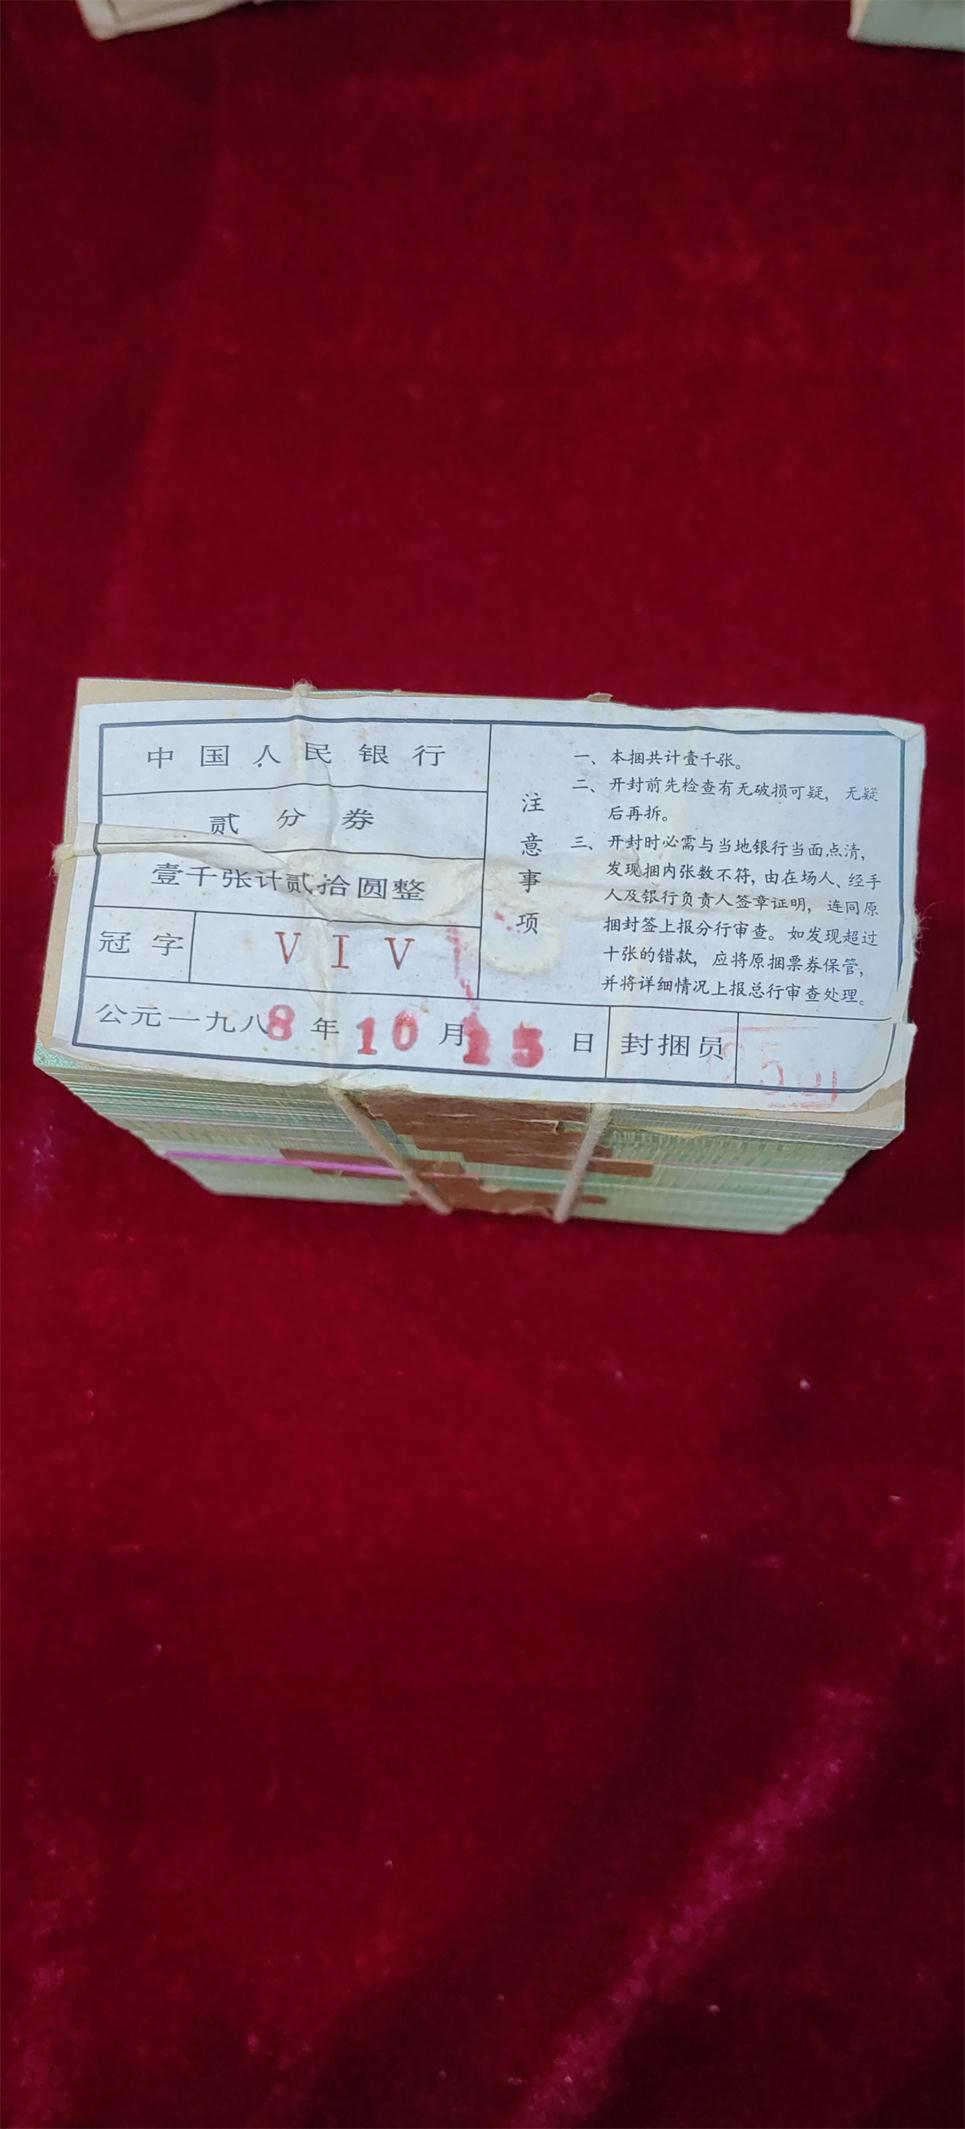 中国人民银行
贰分券
壹千张计贰拾圆整
冠字 VIV
注意事项
一、本捆共计壹千张。
二、开封前先检查有无破损可疑，无疑
后再拆。
三、开封时必需与当地银行当面点清，
发现捆内张数不符，由在场人、经手
人及银行负责人签章证明，连同原
捆封签上报分行审查。如发现超过
十张的错款，应将原捆票券保管，
并将详细情况上报总行审查处理。
公元一九八8年10月25日 封捆员